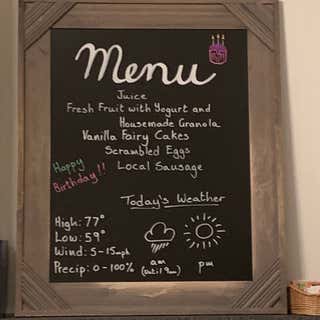 Menu
Juice
Fresh Fruit with Yogurt and
Housemade Granola
Vanilla Fairy Cakes
Scrambled Eggs
Local Sausage
Happy
Birthday!!
Today's Weather
High: 77°
Low: 59°
Wind: 5-15mph
Precip: 0-100%
am
(until 9am)
pm